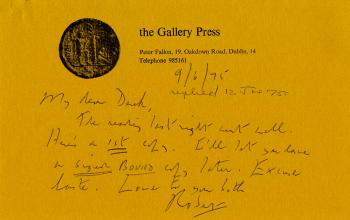 the Gallery Press
Peter Fallon, 19, Oakdown Road, Dublin, 14
Telephone 985161
9/6/75
replied 12 Jun 75
My dear
The reading last night went well.
Here's a 1st copy. I'll let you have
a signed BOUND copy later. Excuse
haste. Love to you both